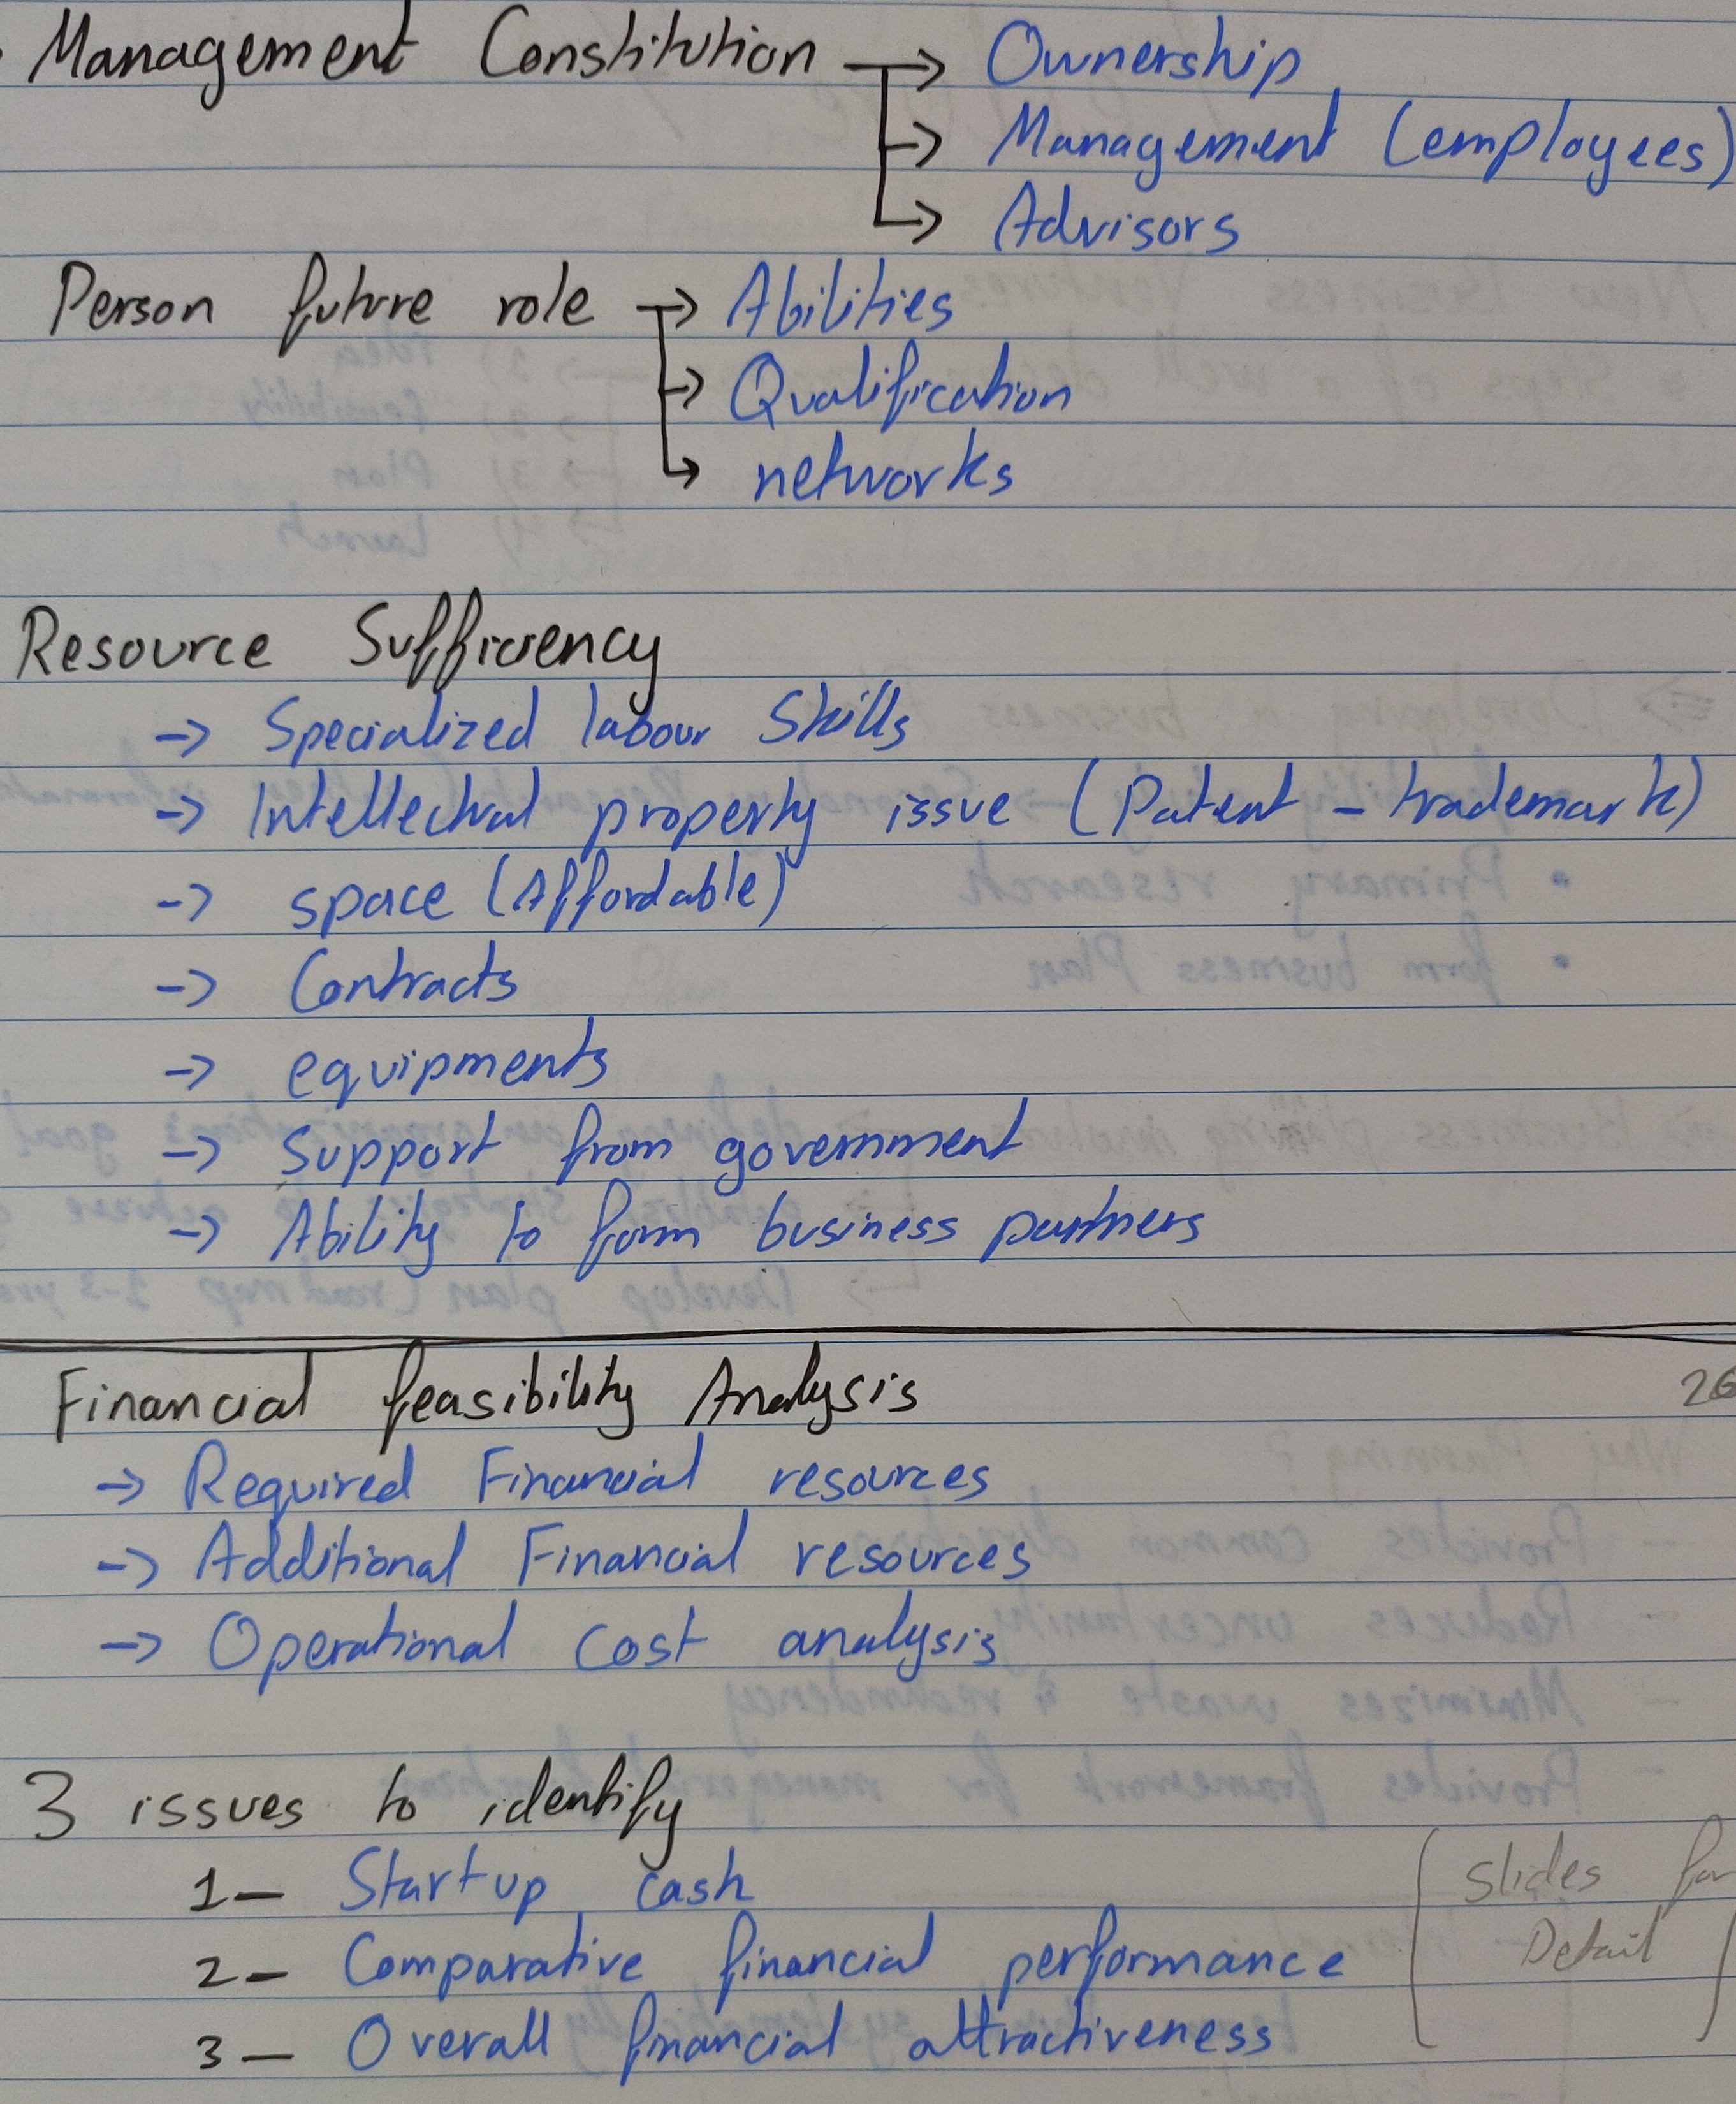 Management Constitution → Ownership
→ Management (employees)
→ Advisors
Person future role → Abilities
→ Qualification
→ networks
Resource Sufficiency
→ Specialized labour Skills
→ Intellectual property issue (Patent - trademark)
→ space (Affordable)
→ Contracts
→ equipments
→ Support from government
→ Ability to form business partners
Financial feasibility Analysis 26
→ Required Financial resources
→ Additional Financial resources
→ Operational cost analysis
3 issues to identify
1- Startup cash
2- Comparative financial performance
3- Overall financial attractiveness
(Slides for
Detail)